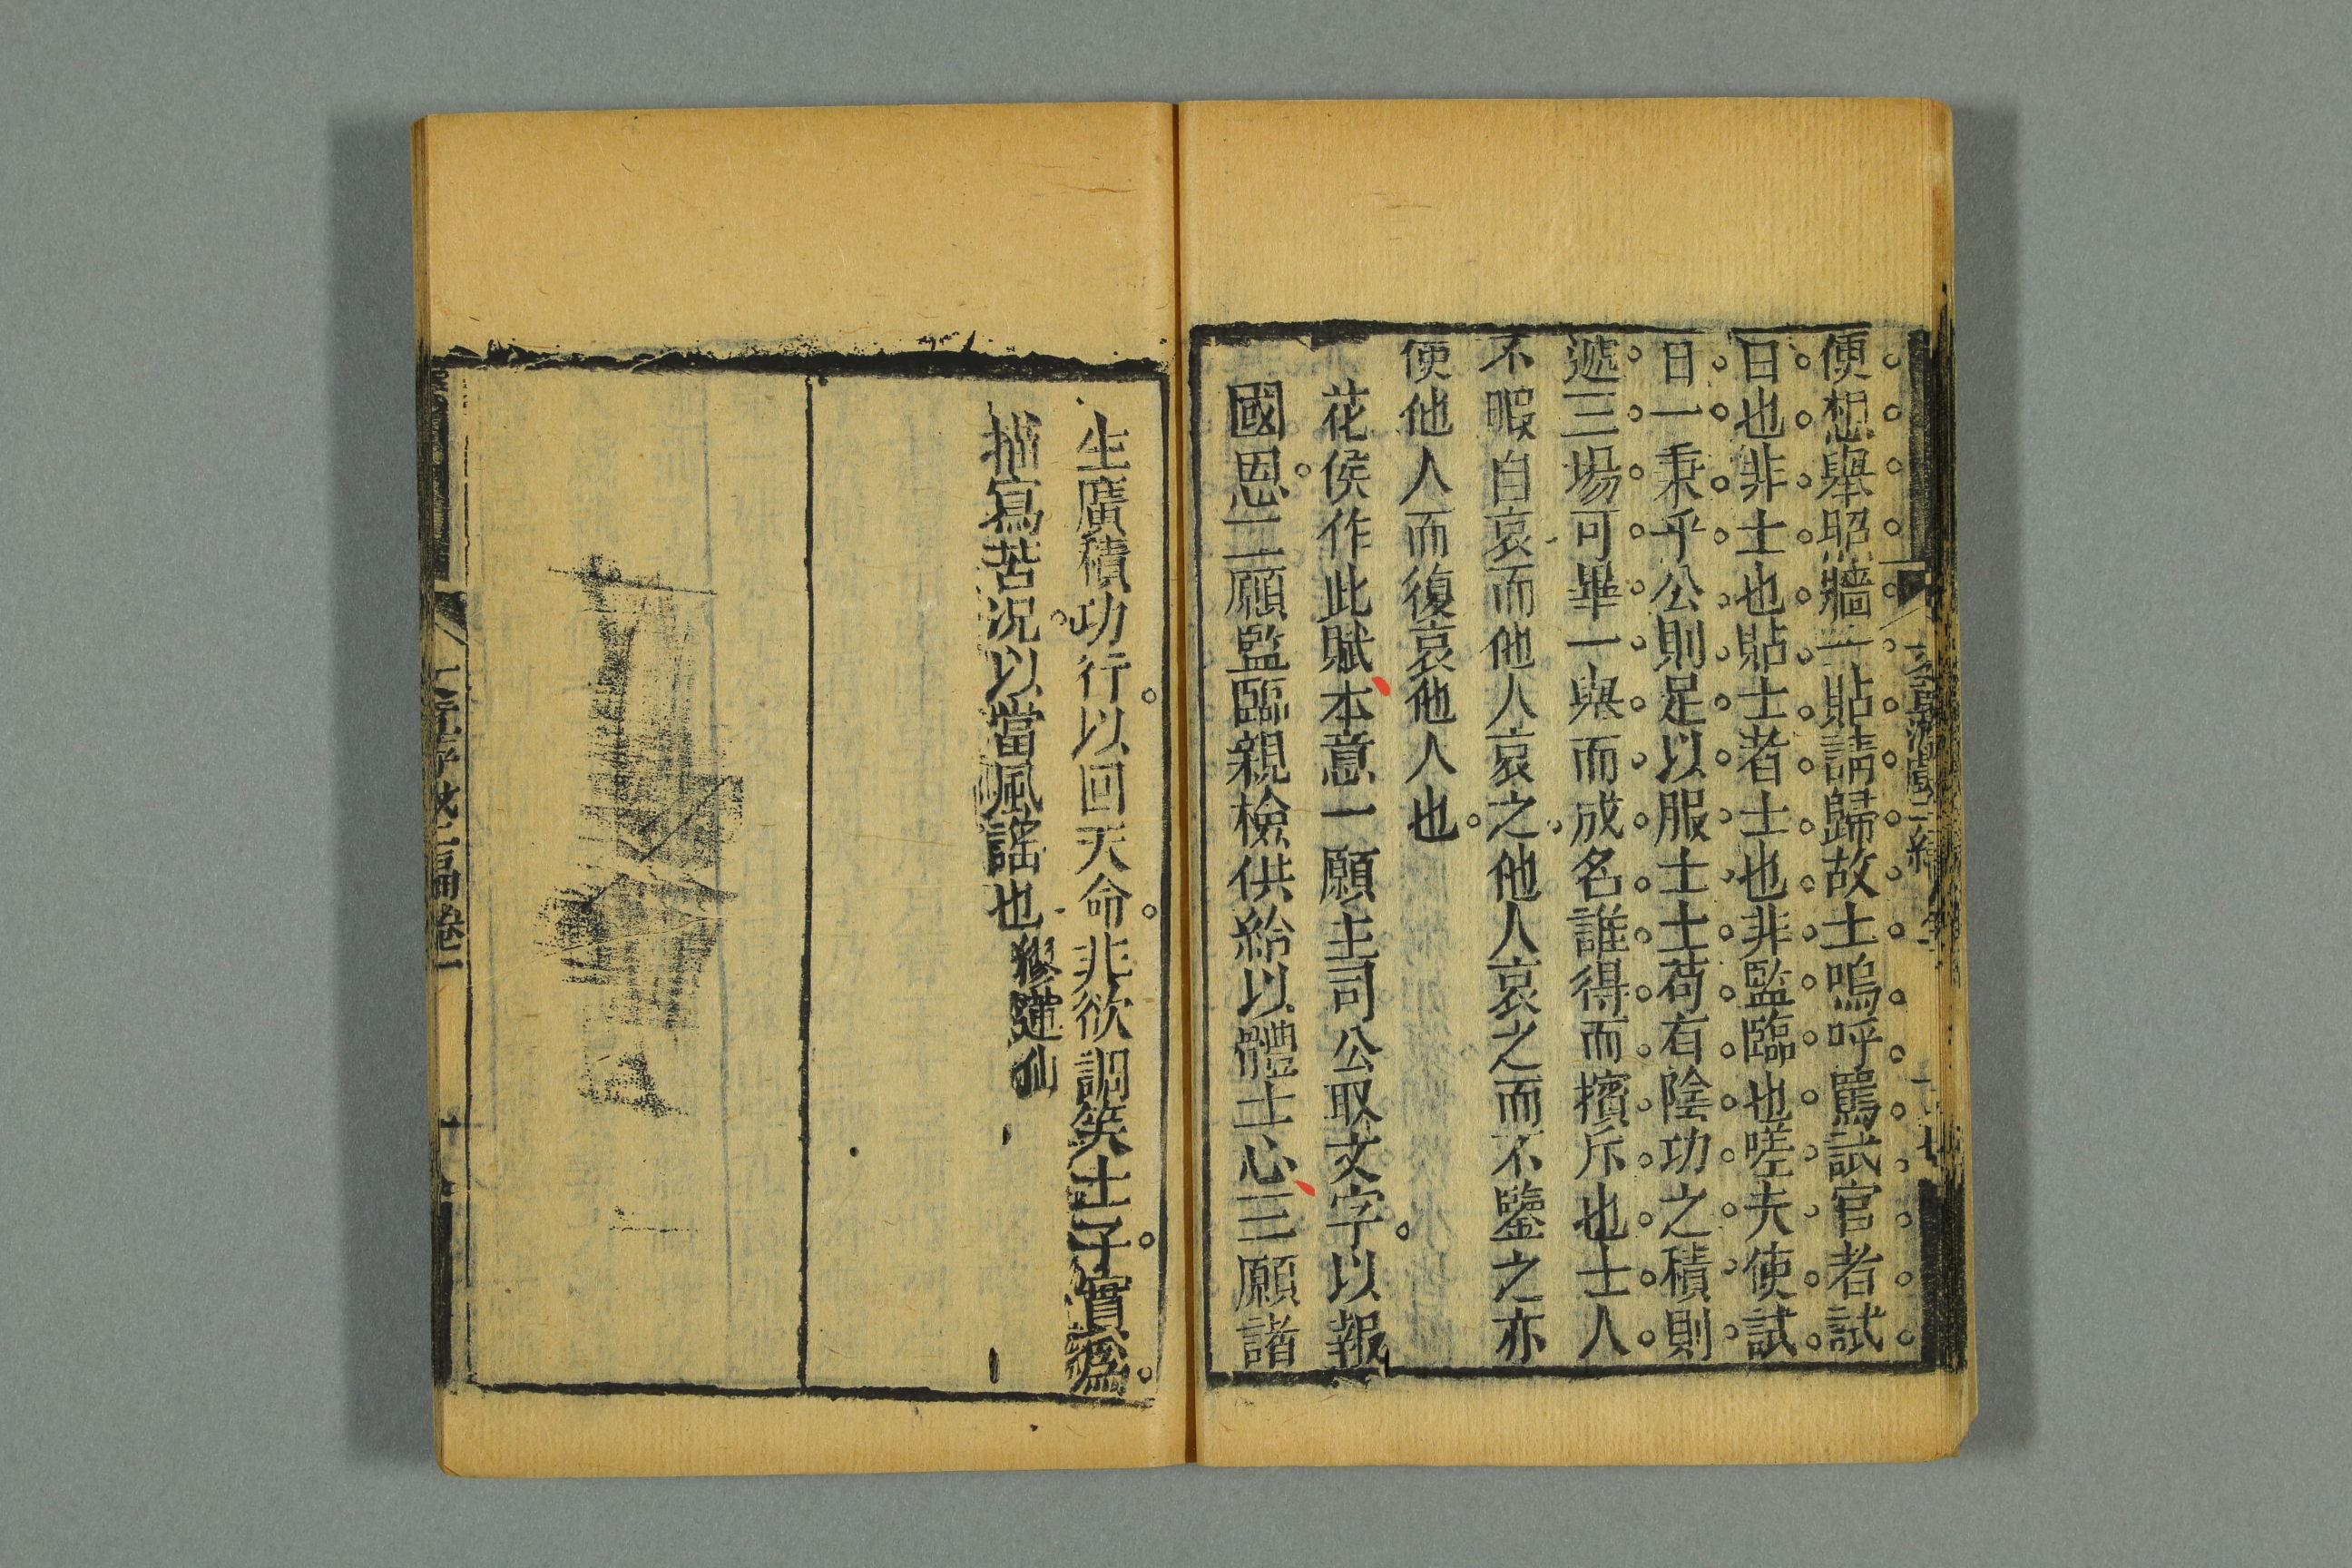 便想舉昭牆一貼請歸故土嗚呼罵試官者試
日也非士也貼士者士也非監臨也嗟夫使試
日一秉乎公則足以服士士苟有陰功之積則
遞三場可畢一舉而成名誰得而擯斥也士人
不暇自哀而他人哀之他人哀之而不鑒之亦
使他人而復哀他人也
花侯作此賦本意一願主司公取文字以報
國恩二願監臨親檢供給以體士心三願諸
生廣積功行以回天命非欲調笑士子實爲
描寫苦況以當風謠也繆蓮仙